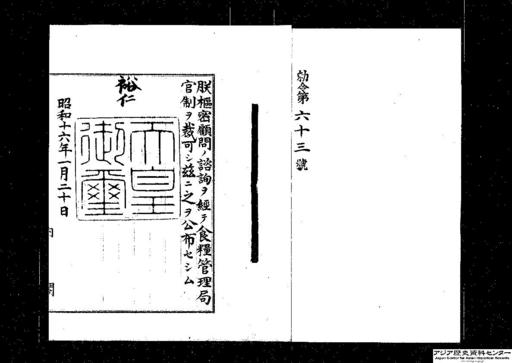 勅令第六十三號
朕樞密顧問ノ諮詢ヲ經テ食糧管理局
官制ヲ裁可シ茲ニ之ヲ公布セシム
裕仁
天皇
御璽
昭和十六年一月二十日
内閣
アジア歴史資料センター
Japan Center for Asian Historical Records